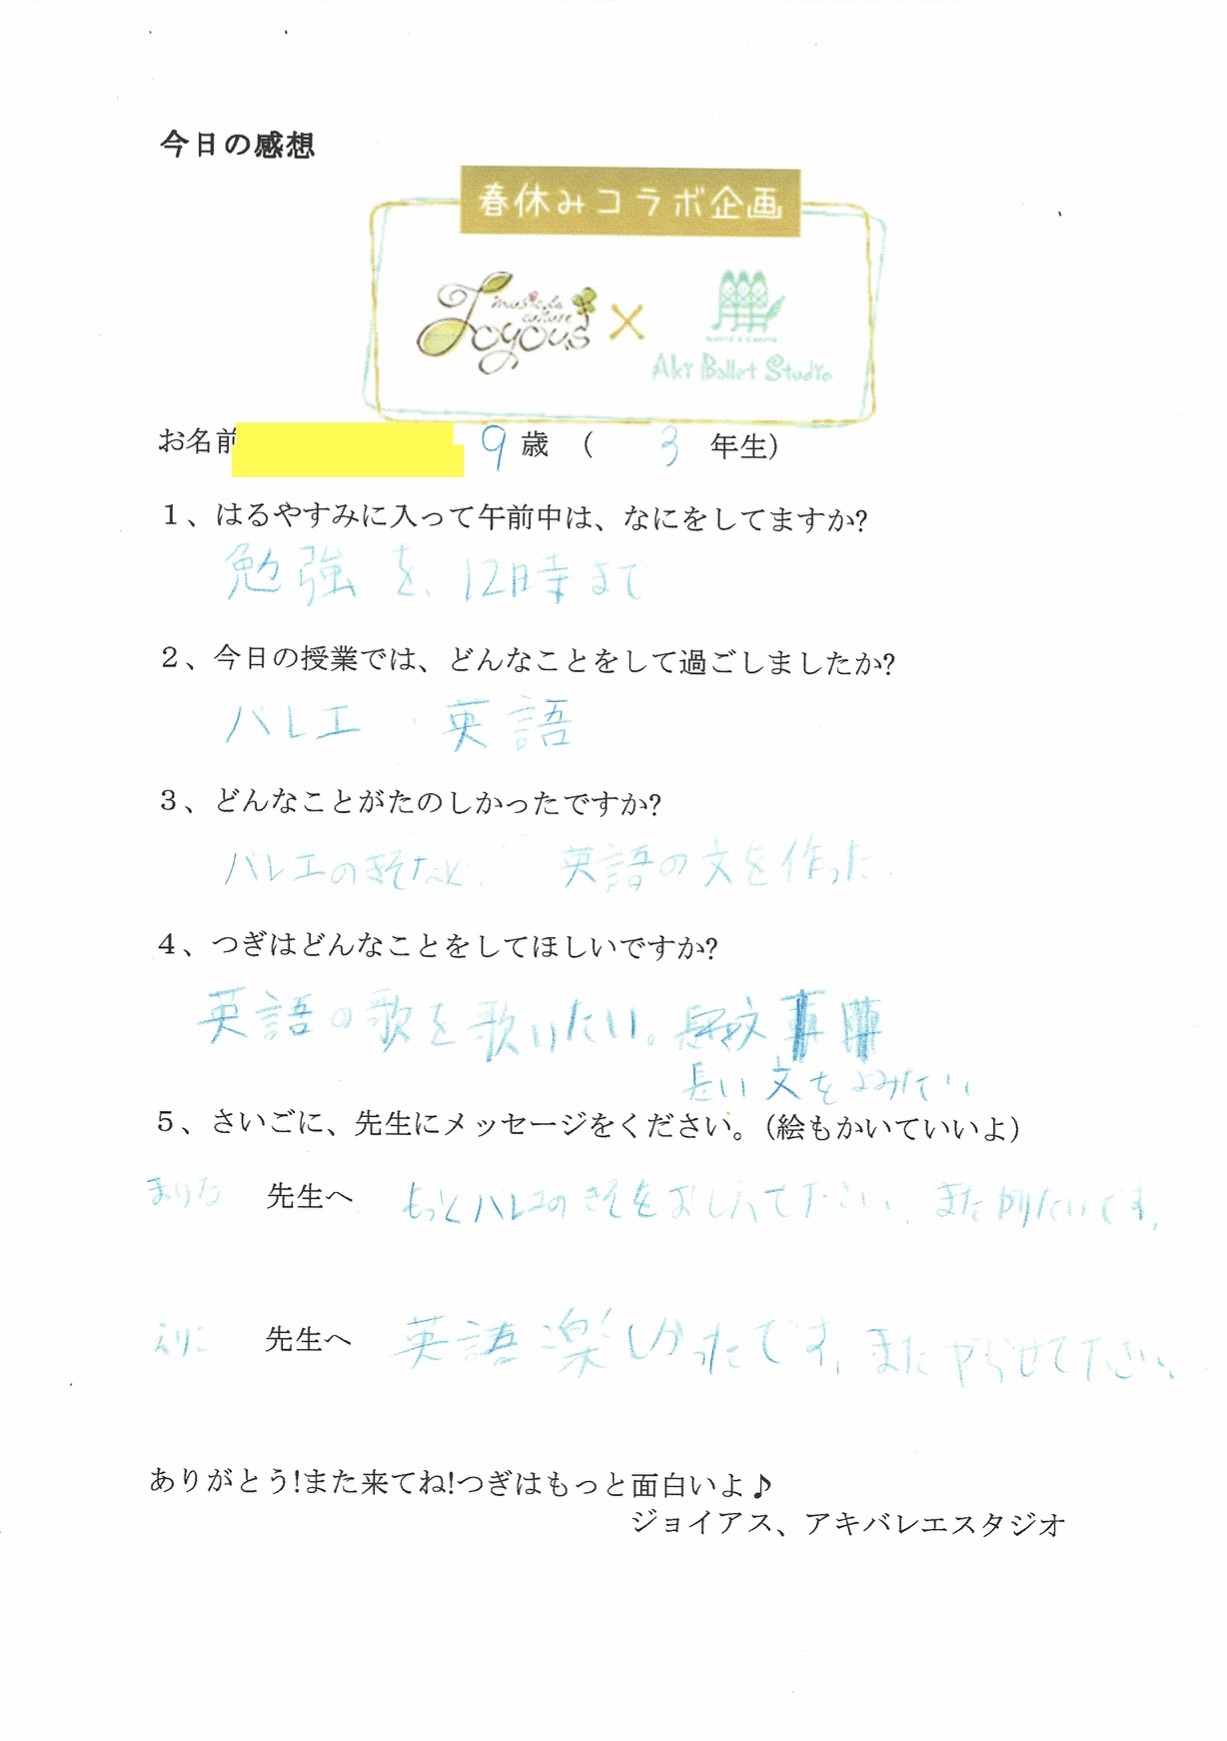 今日の感想
春休みコラボ企画
Joyous
music & culture
×
Aki Ballet Studio
お名前 9歳 ( 3 年生)
1、はるやすみに入って午前中は、なにをしてますか?
勉強を、12時まで
2、今日の授業では、どんなことをして過ごしましたか?
バレエ 英語
3、どんなことがたのしかったですか?
バレエのきそなこと、 英語の文を作った。
4、つぎはどんなことをしてほしいですか?
英語の歌を歌いたい。
長い文をよみたい
5、さいごに、先生にメッセージをください。(絵もかいていいよ)
まりな 先生へ もっとバレエのきそをおしえて下さい。また例たいです。
えりこ 先生へ 英語楽しかったです。またやらせて下さい。
ありがとう!また来てね!つぎはもっと面白いよ♪
ジョイアス、アキバレエスタジオ